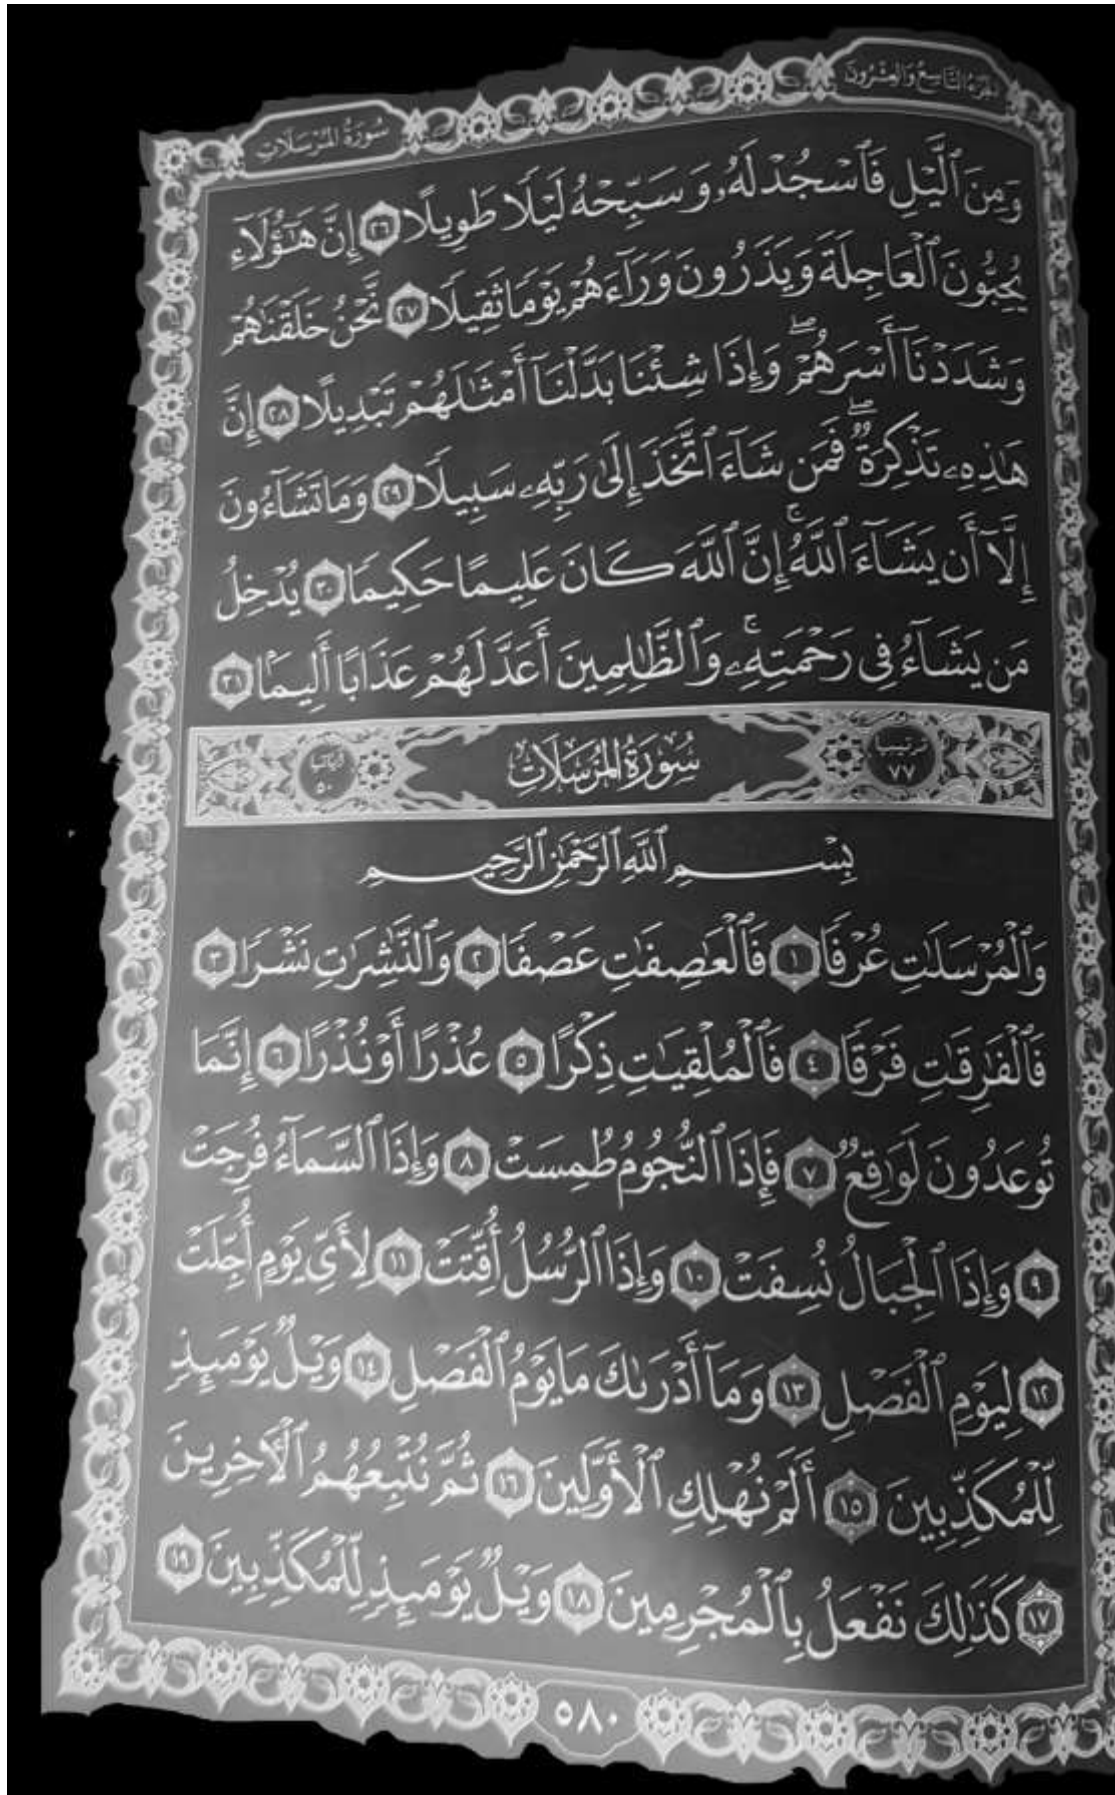 الجزء التاسع والعشرون
سورة المرسلات
وَمِنَ ٱلَّيۡلِ فَٱسۡجُدۡ لَهُۥ وَسَبِّحۡهُ لَيۡلٗا طَوِيلًا ٢٦ إِنَّ هَٰٓؤُلَآءِ
يُحِبُّونَ ٱلۡعَاجِلَةَ وَيَذَرُونَ وَرَآءَهُمۡ يَوۡمٗا ثَقِيلٗا ٢٧ نَّحۡنُ خَلَقۡنَٰهُمۡ
وَشَدَدۡنَآ أَسۡرَهُمۡۖ وَإِذَا شِئۡنَا بَدَّلۡنَآ أَمۡثَٰلَهُمۡ تَبۡدِيلًا ٢٨ إِنَّ
هَٰذِهِۦ تَذۡكِرَةٞۖ فَمَن شَآءَ ٱتَّخَذَ إِلَىٰ رَبِّهِۦ سَبِيلٗا ٢٩ وَمَا تَشَآءُونَ
إِلَّآ أَن يَشَآءَ ٱللَّهُۚ إِنَّ ٱللَّهَ كَانَ عَلِيمًا حَكِيمٗا ٣٠ يُدۡخِلُ
مَن يَشَآءُ فِي رَحۡمَتِهِۦۚ وَٱلظَّٰلِمِينَ أَعَدَّ لَهُمۡ عَذَابًا أَلِيمَۢا ٣١
ترتيبها ٧٧ سُورَةُ المُرۡسَلَاتِ آياتها ٥٠
بِسۡمِ ٱللَّهِ ٱلرَّحۡمَٰنِ ٱلرَّحِيمِ
وَٱلۡمُرۡسَلَٰتِ عُرۡفٗا ١ فَٱلۡعَٰصِفَٰتِ عَصۡفٗا ٢ وَٱلنَّٰشِرَٰتِ نَشۡرٗا ٣
فَٱلۡفَٰرِقَٰتِ فَرۡقٗا ٤ فَٱلۡمُلۡقِيَٰتِ ذِكۡرًا ٥ عُذۡرًا أَوۡ نُذۡرًا ٦ إِنَّمَا
تُوعَدُونَ لَوَٰقِعٞ ٧ فَإِذَا ٱلنُّجُومُ طُمِسَتۡ ٨ وَإِذَا ٱلسَّمَآءُ فُرِجَتۡ
٩ وَإِذَا ٱلۡجِبَالُ نُسِفَتۡ ١٠ وَإِذَا ٱلرُّسُلُ أُقِّتَتۡ ١١ لِأَيِّ يَوۡمٍ أُجِّلَتۡ
١٢ لِيَوۡمِ ٱلۡفَصۡلِ ١٣ وَمَآ أَدۡرَىٰكَ مَا يَوۡمُ ٱلۡفَصۡلِ ١٤ وَيۡلٞ يَوۡمَئِذٖ
لِّلۡمُكَذِّبِينَ ١٥ أَلَمۡ نُهۡلِكِ ٱلۡأَوَّلِينَ ١٦ ثُمَّ نُتۡبِعُهُمُ ٱلۡأٓخِرِينَ
١٧ كَذَٰلِكَ نَفۡعَلُ بِٱلۡمُجۡرِمِينَ ١٨ وَيۡلٞ يَوۡمَئِذٖ لِّلۡمُكَذِّبِينَ ١٩
٥٨٠